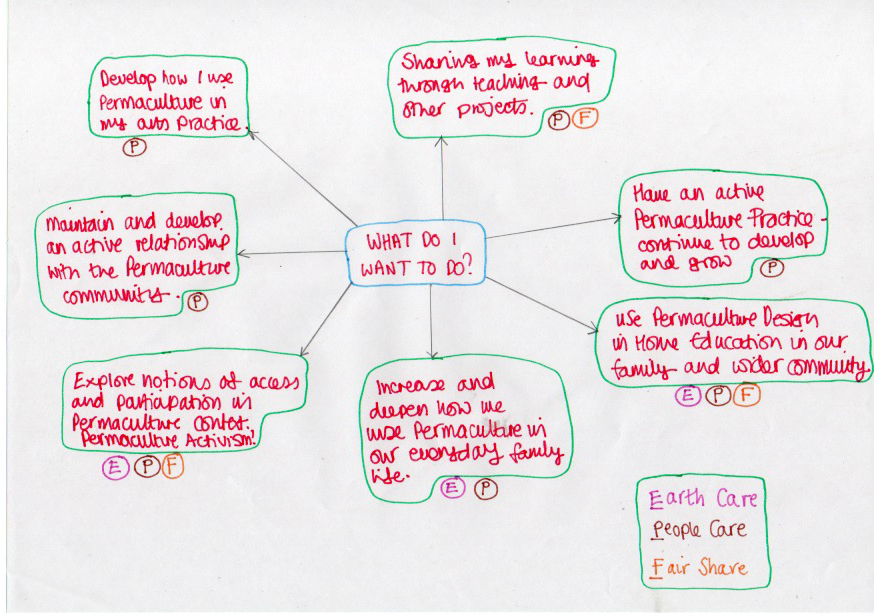 Develop how I use
Permaculture in
my arts practice.
P
Sharing my learning
through teaching and
other projects.
P F
Have an active
Permaculture Practice -
continue to develop
and grow
P
Maintain and develop
an active relationship
with the Permaculture
community.
P
WHAT DO I
WANT TO DO?
use Permaculture Design
in Home Education in our
family and wider community.
E P F
Explore notions of access
and participation in
Permaculture contex.
Permaculture Activism!
E P F
Increase and
deepen how we
use Permaculture in
our everyday family
life.
E P
Earth Care
People Care
Fair Share